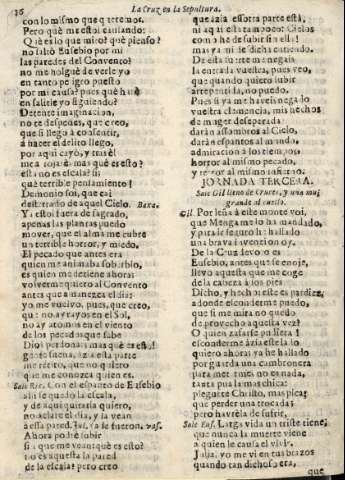 36
La Cruz en la Sepultura.
con lo mismo que
Pero què me estoi cansando:
Què es lo que miro? què pienso?
no saliò Eusebio por mi
las paredes del Convento?
no me holguè de verle yo
en tanto peligro puesto
por mi causa? pues què hize
en salirle yo siguiendo?
Detente imaginacion,
no te despeñes, que creo,
que si llego à consentir,
à hacer el delito llego,
por aqui cayò, y tras èl
me mas què es esto?
esta no es escala? si:
què terrible pensamiento!
Demonio soi, que cai
despeñado de aquel Cielo. Baxa.
Ya estoi fuera de sagrado,
apenas las plantas puedo
mover, que el alma me cubre
un terrible horror, y miedo.
El pecado que antes era
quien me animaba soberbio,
es quien me detiene ahora:
volverme quiero al Convento
antes que amanezca el dia:
yo me vuelvo, pues, que creo,
que no ay rayos en el Sol,
no ay atomos en el viento
de los pecados que sabe
Dios perdonar: mas què es esto!
gente suena, àzia esta parte
me retiro, que no quiero
que me conozca quien es.
Sale Ric. Con el espanto de Eusebio
alli se quedò la escala,
y de aqui quitarla quiero,
no aclare el dia, y la vean
à esta pared. vas.
Ahora podrè subir
sin que me vean: què es esto?
no es aquesta la pared
de la escala? pero creo
que àzia esotra parte està,
ni aqui està tampoco: Cielos
como he de subir sin ella!
mas ya mi desdicha entiendo.
De esta suerte me negais
la entrada vuestra, pues veo,
que quando quiero subir
arrepentida, no puedo.
Pues si ya me haveis negado
vuestra clemencia, mis hechos
de muger desesperada
daràn assombros al Cielo,
daràn espantos al mundo,
admiracion à los tiempos,
horror al mismo pecado,
y terror al mismo infierno.
JORNADA TERCERA.
Sale Gil lleno de Cruces, y una muy
grande al cuello.
Gil. Por leña à este monte voi,
que Menga me lo ha mandado,
y para ir seguro he hallado
una brava invencion oy.
De la Cruz devoto es
Eusebio, antes que se enoje,
llevo aquesta que me coge
de la cabeza à los pies.
Dicho, y hecho: este es pardiez,
adonde esconderme puedo,
que si me mira no quedo
de provecho aquesta vez?
O quien zafarse pudiera!
esconderme àzia este lado
quiero ahora: ya he hallado
por guarda una cambronera
para meterme: no es nada,
tanta pua la mas chica:
pleguete Christo, mas pica,
que perder una trocada;
pero havrèla de sufrir.
Sale Eus. Larga vida un triste tiene,
que nunca la muerte viene
à quien le causa el vivir.
Julia, yo me vi en tus brazos
quando tan dichoso era,
que